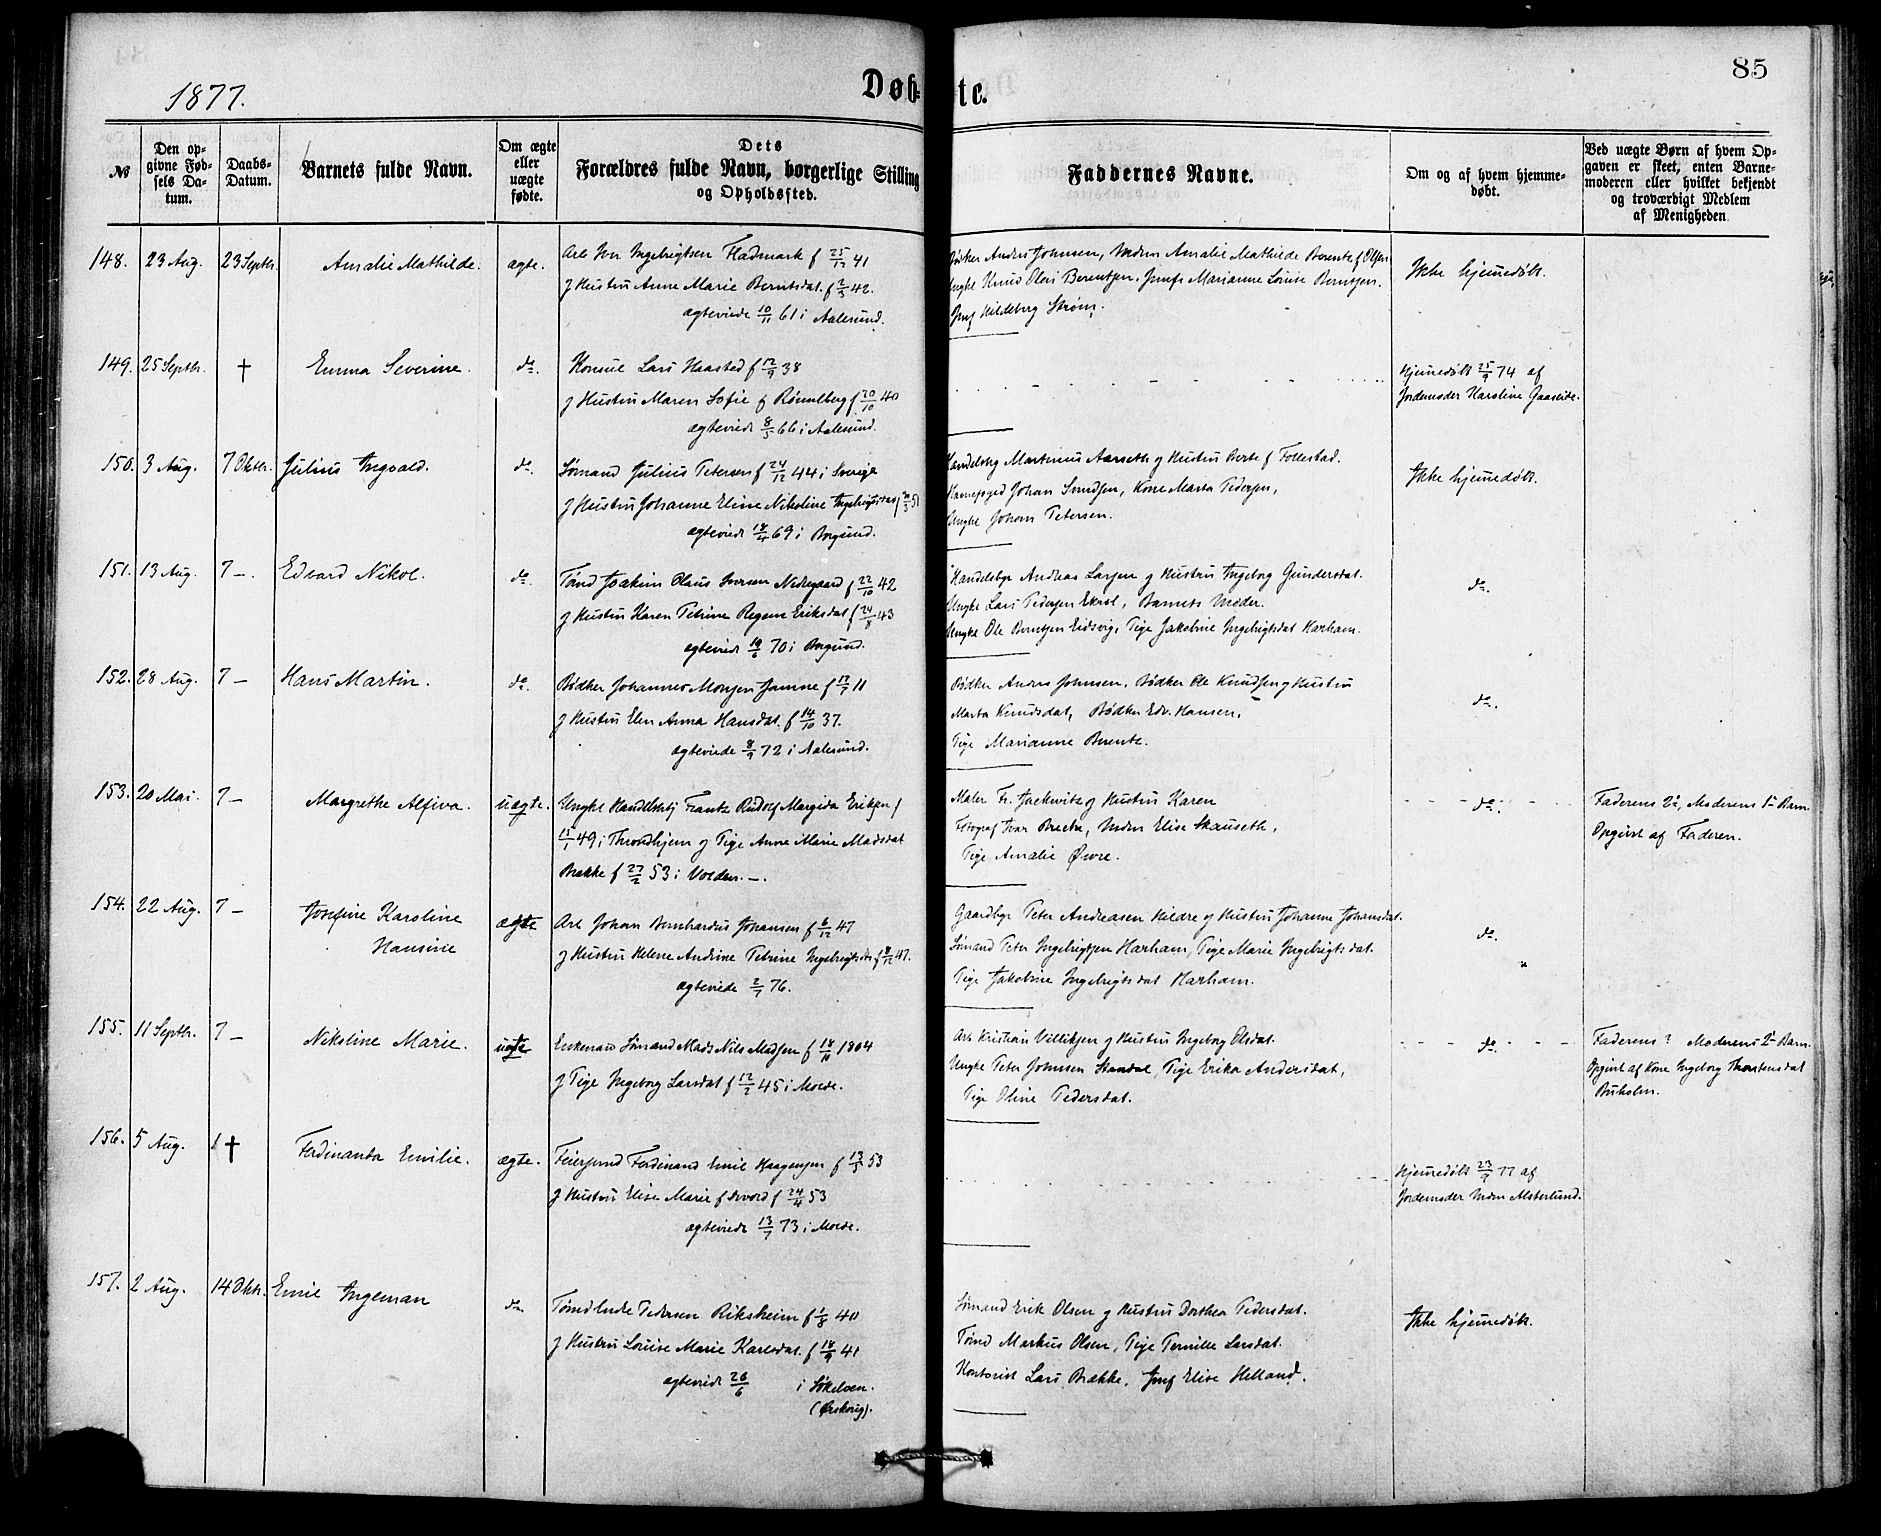 1877.
Døb-
te.
85
№
Den op-
givne Fød-
sels Da-
tum.
Daabs-
Datum.
Barnets fulde Navn.
Om ægte
eller
uægte
fødte.
Dets
Forældres fulde Navn, borgerlige Stilling
og Opholdssted.
Faddernes Navne.
Om og af hvem hjemme-
døbt.
Ved uægte Børn af hvem Op-
gaven er skeet, enten Barne-
moderen eller hvilket bekjendt
og troværdigt Medlem
af Menigheden
148. 23 Aug. 23 Septbr. Amalie Mathilde. ægte.
Arb Iver Ingebrigtsen Fladmark f 25/12 41
g Hustru Anne Marie Berntsdat. f 2/3 42.
ægteviede 10/11 61 i Aalesund.
Bødker Anders Johnsen, Madm Amalie Mathilde Berentz f Olsen
Ungk Knud Olai Berentsen, Jomfr Marianne Lovise Berntsen.
Jmf Hildeborg Strøm.
Ikke hjemmedøbt.
149. 25 Septbr. † Emma Severine. do.
Konsul Lars Haasted f 12/9 38
g Hustru Maren Sofie f Rønnelberg f 20/10 40
ægteviede 8/5 66 i Aalesund.
Hjemmedøbt 25/9 74 af
Jordemoder Karoline Gaaseide.
150. 3 Aug. 7 Oktbr. Julius Ingvald. do.
Sømand Julius Petersen f 24/12 44 i Sverige
g Hustru Johanne Eline Nikoline Ingebrigtsdat
ægteviede 18/4 69 i Borgund.
Handelsbg Martinius Aarseth g Hustru Berte f Follestad.
Johan Svendsen, Kone Marta Pedersen,
Ungk Johan Petersen.
Ikke hjemmedøbt.
151. 13 Aug. 7 –. Edvard Nikol. do.
Tømd Joakim Olaus Iversen Nedregaard f 22/10 42
g Hustru Karen Petrine Regine Eriksdat f 24/8 43
ægteviede 19/6 70 i Borgund.
Handelsbgr Andreas Larsen g Hustru Ingeborg Gundersdat.
Ungk Lars Pedersen Ekrol, Barnets Moder.
Ungk Ole Berntsen Eidsvig, Pige Jakobine Ingebrigtsdat Harham.
do.
152. 28 Aug. 7 – Hans Martin. do.
Bødker Johannes Monsen Jamne f 17/7 11
g Hustru Elen Anna Hansdat. f 14/10 37.
ægteviede 8/9 72 i Aalesund.
Bødker Anders Johnsen, Bødker Ole Knudsen g Hustru
Marta Knudsdat, Bødker Edv. Hansen,
Pige Marianne Berentz.
do.
153. 20 Mai. 7 – Margrethe Alfiva. uægte.
Ungk Handelsbetj Frantz Rudolf Margido Eriksen f
11/1 49 i Throndhjem g Pige Anne Marie Madsdat
Brække f 27/2 53 i Volden. –.
Maler Fr. Jackwitz g Hustru Karen
Fotograf Ivar Brecke, Madm Elise Skauseth,
Pige Amalie Øvre.
do.
Faderens 2t, Moderens 1t Barn
Opgivet af Faderen.
154. 22 Aug. 7 – Josefine Karoline
Hansine
ægte
Arb Johan Bernhardus Johansen f 6/12 47
g Hustru Helene Andrine Petrine Ingebrigtsdat f 8/12 47.
ægteviede 2/7 76.
Gaardbgr Peter Andreasen Hildre g Hustru Johanne Johansdat.
Sømand Peter Ingebrigtsen Harham, Pige Marie Ingebrigtsdat.
Pige Jakobine Ingebrigtsdat Harham.
do.
155. 11 Septbr. 7 – Nikoline Marie. uægte
Enkemand Sømand Mads Nils Madsen f 18/11 1804
g Pige Ingeborg Larsdat f 12/2 45 i Molde.
Arb Kristian Villiksen g Hustru Ingeborg Olsdat.
Ungk Peter Johnsen Standal, Pige Erika Andersdat,
Pige Oline Pedersdat.
do.
Faderens ? Moderens 2t Barn
Opgivet af Kone Ingeborg Thorstensdat
Buholm.
156. 5 Aug. † Ferdinanda Emilie. ægte.
Feiersvend Ferdinand Emil Haagensen f 13/5 53
g Hustru Elise Marie f Sivord f 24/4 53
ægteviede 13/7 73 i Molde.
Hjemmedøbt 23/9 77 af
Jordemoder Madm Alsterlund.
157. 2 Aug. 14 Oktr. Emil Ingeman do.
Tømd Endre Pedersen Riksheim f 1/8 40
g Hustru Lovise Marie Karlsdat. f 18/9 41
ægteviede 26/6 i Søkelven.
(Ørskoug).
Sømand Erik Olsen g Hustru Dorthea Pedersdat.
Tømd Markus Olsen, Pige Pernille Larsdat.
Kontorist Lars Brække, Jmf Elise Helland.
Ikke hjemmedøbt.